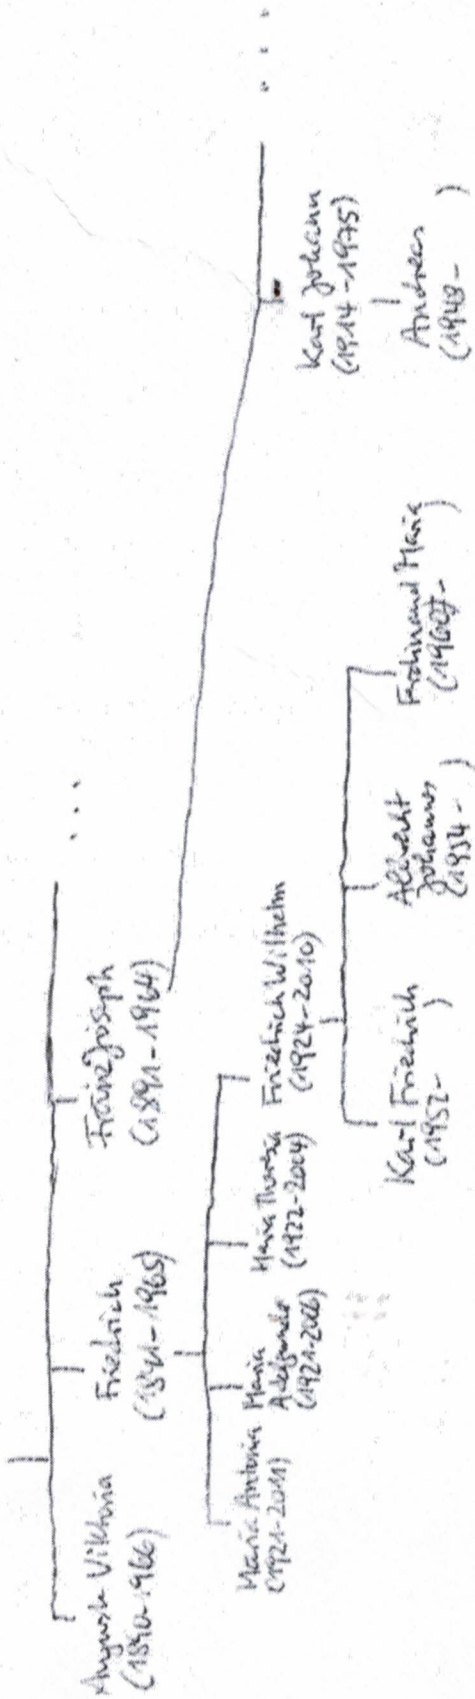 ...
Auguste Viktoria
(1890-1966)
Friedrich
(1891-1965)
Franz Joseph
(1891-1964)
...
Maria Antonia
(1921-2011)
Maria
Adelgunde
(1921-2006)
Maria Theresa
(1922-2004)
Friedrich Wilhelm
(1924-2010)
Karl Johann
(1914-1975)
Karl Friedrich
(1952- )
Albrecht
Johannes
(1954- )
Ferdinand Maria
(1960- )
Andreas
(1948- )